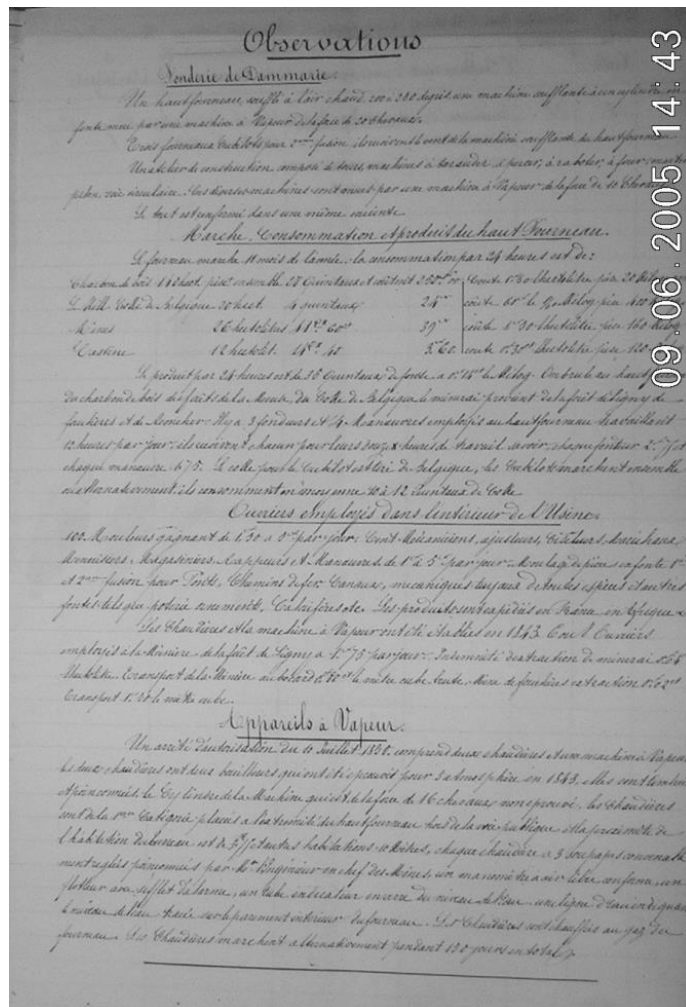 Observations
Fonderie de Dammarie
Un haut fourneau, soufflé à l'air chaud 200 à 240 degrés une machine soufflante à un cylindre en
fonte mue par une machine à Vapeur de la force de 20 chevaux.
Trois fourneaux Cubilots pour 2me fusion, ils reçoivent le vent de la machine soufflante du haut fourneau
Un atelier de construction composé de tours, machines à tarauder, à percer, à raboter, à
scie circulaire. Ces diverses machines sont mues par une machine à Vapeur de la force de 10 Chevaux
Le tout est renfermé dans une même enceinte.
Marche, Consommation et produit du haut Fourneau.
Le fourneau marche 11 mois de l'année, la consommation par 24 heures est de:
Charbon de bois ensemble 28 Quintaux et coûtent
Coke de Belgique 20 hect. 4 quintaux 24 coûte
Mines 26 hectolitres 39 coûte 1f 30 l'hectolitre
Castine 12 hectolit. 3,60 coûte 0f 30 l'hectolitre
Le produit par 24 heures est de 36 Quintaux de fonte, a 0f 14 le Kilog. On brule au haut
du charbon de bois des forêts de la Meuse, du Coke de Belgique le minerai provient de la forêt de Ligny de
Il y a 3 fondeurs et 14 Manœuvres employés au haut fourneau travaillant
12 heures par jour; ils reçoivent chacun pour leurs douze heures de travail savoir: chaque fondeur 2f
chaque manœuvre 1f 75. Le coke pour les Cubilots est tiré de Belgique, les Cubilots marchent ensemble
ou alternativement; ils consomment en moyenne 10 à 12 Quintaux de Coke
Ouvriers employés dans l'intérieur de l'Usine.
100 Mouleurs gagnant de 1f 50 à par jour; Cent Mécaniciens, ajusteurs, Ciseleurs, Maréchaux
Menuisiers, Magasiniers, Rappeurs et Manœuvres de 1f à 5f par jour. Moulage de pièces en fonte 1re
et 2me fusion pour Ponts, Chemins de fer, Canaux, mécaniques, tuyaux de toutes espèces et autres
fontes telles que poterie ornements, Calorifères etc. Les produits sont expédiés en France en Afrique &
Les Chaudières et la machine à Vapeur ont été établies en 1843. Ouvriers
employés à la Minière de la forêt de Ligny à 1f 75 par jour. Indemnité d'extraction de minerai 0f 65
l'hectolitre. Transport de la Minière au bocard le mètre cube extraction
Transport 1f 20 le mètre cube.
Appareils à Vapeur.
Un arrêté d'autorisation du 10 Juillet comprend deux chaudières et une machine à Vapeur
Les deux chaudières ont deux bouilleurs qui ont été éprouvés pour 3 atmosphère en 1843, elles sont timbrées
et poinçonnées. Le Cylindre de la Machine qui est de la force de 16 chevaux non éprouvé. Les Chaudières
sont de la 1re Catégorie placées à l'extrémité du haut fourneau hors de la voie publique et la proximité de
l'habitation du bureau est de autres habitations 10 Mètres, chaque chaudière a 3 soupapes convenable
ment réglées poinçonnées par Mr l'Ingénieur en chef des Mines, un manomètre à air libre conforme, un
flotteur avec sifflet d'alarme, un tube indicateur en verre du niveau de l'eau une ligne d'eau indiquant
le niveau de l'eau tracée sur le parement intérieur du fourneau. Les Chaudières sont chauffées au gaz du
fourneau. Les Chaudières marchent alternativement pendant 150 jours en total.
09.06.2005 14:43